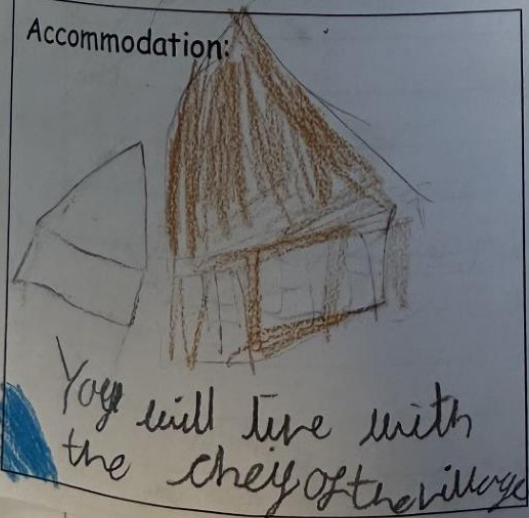 Accommodation:
You will live with
the cheif of the village